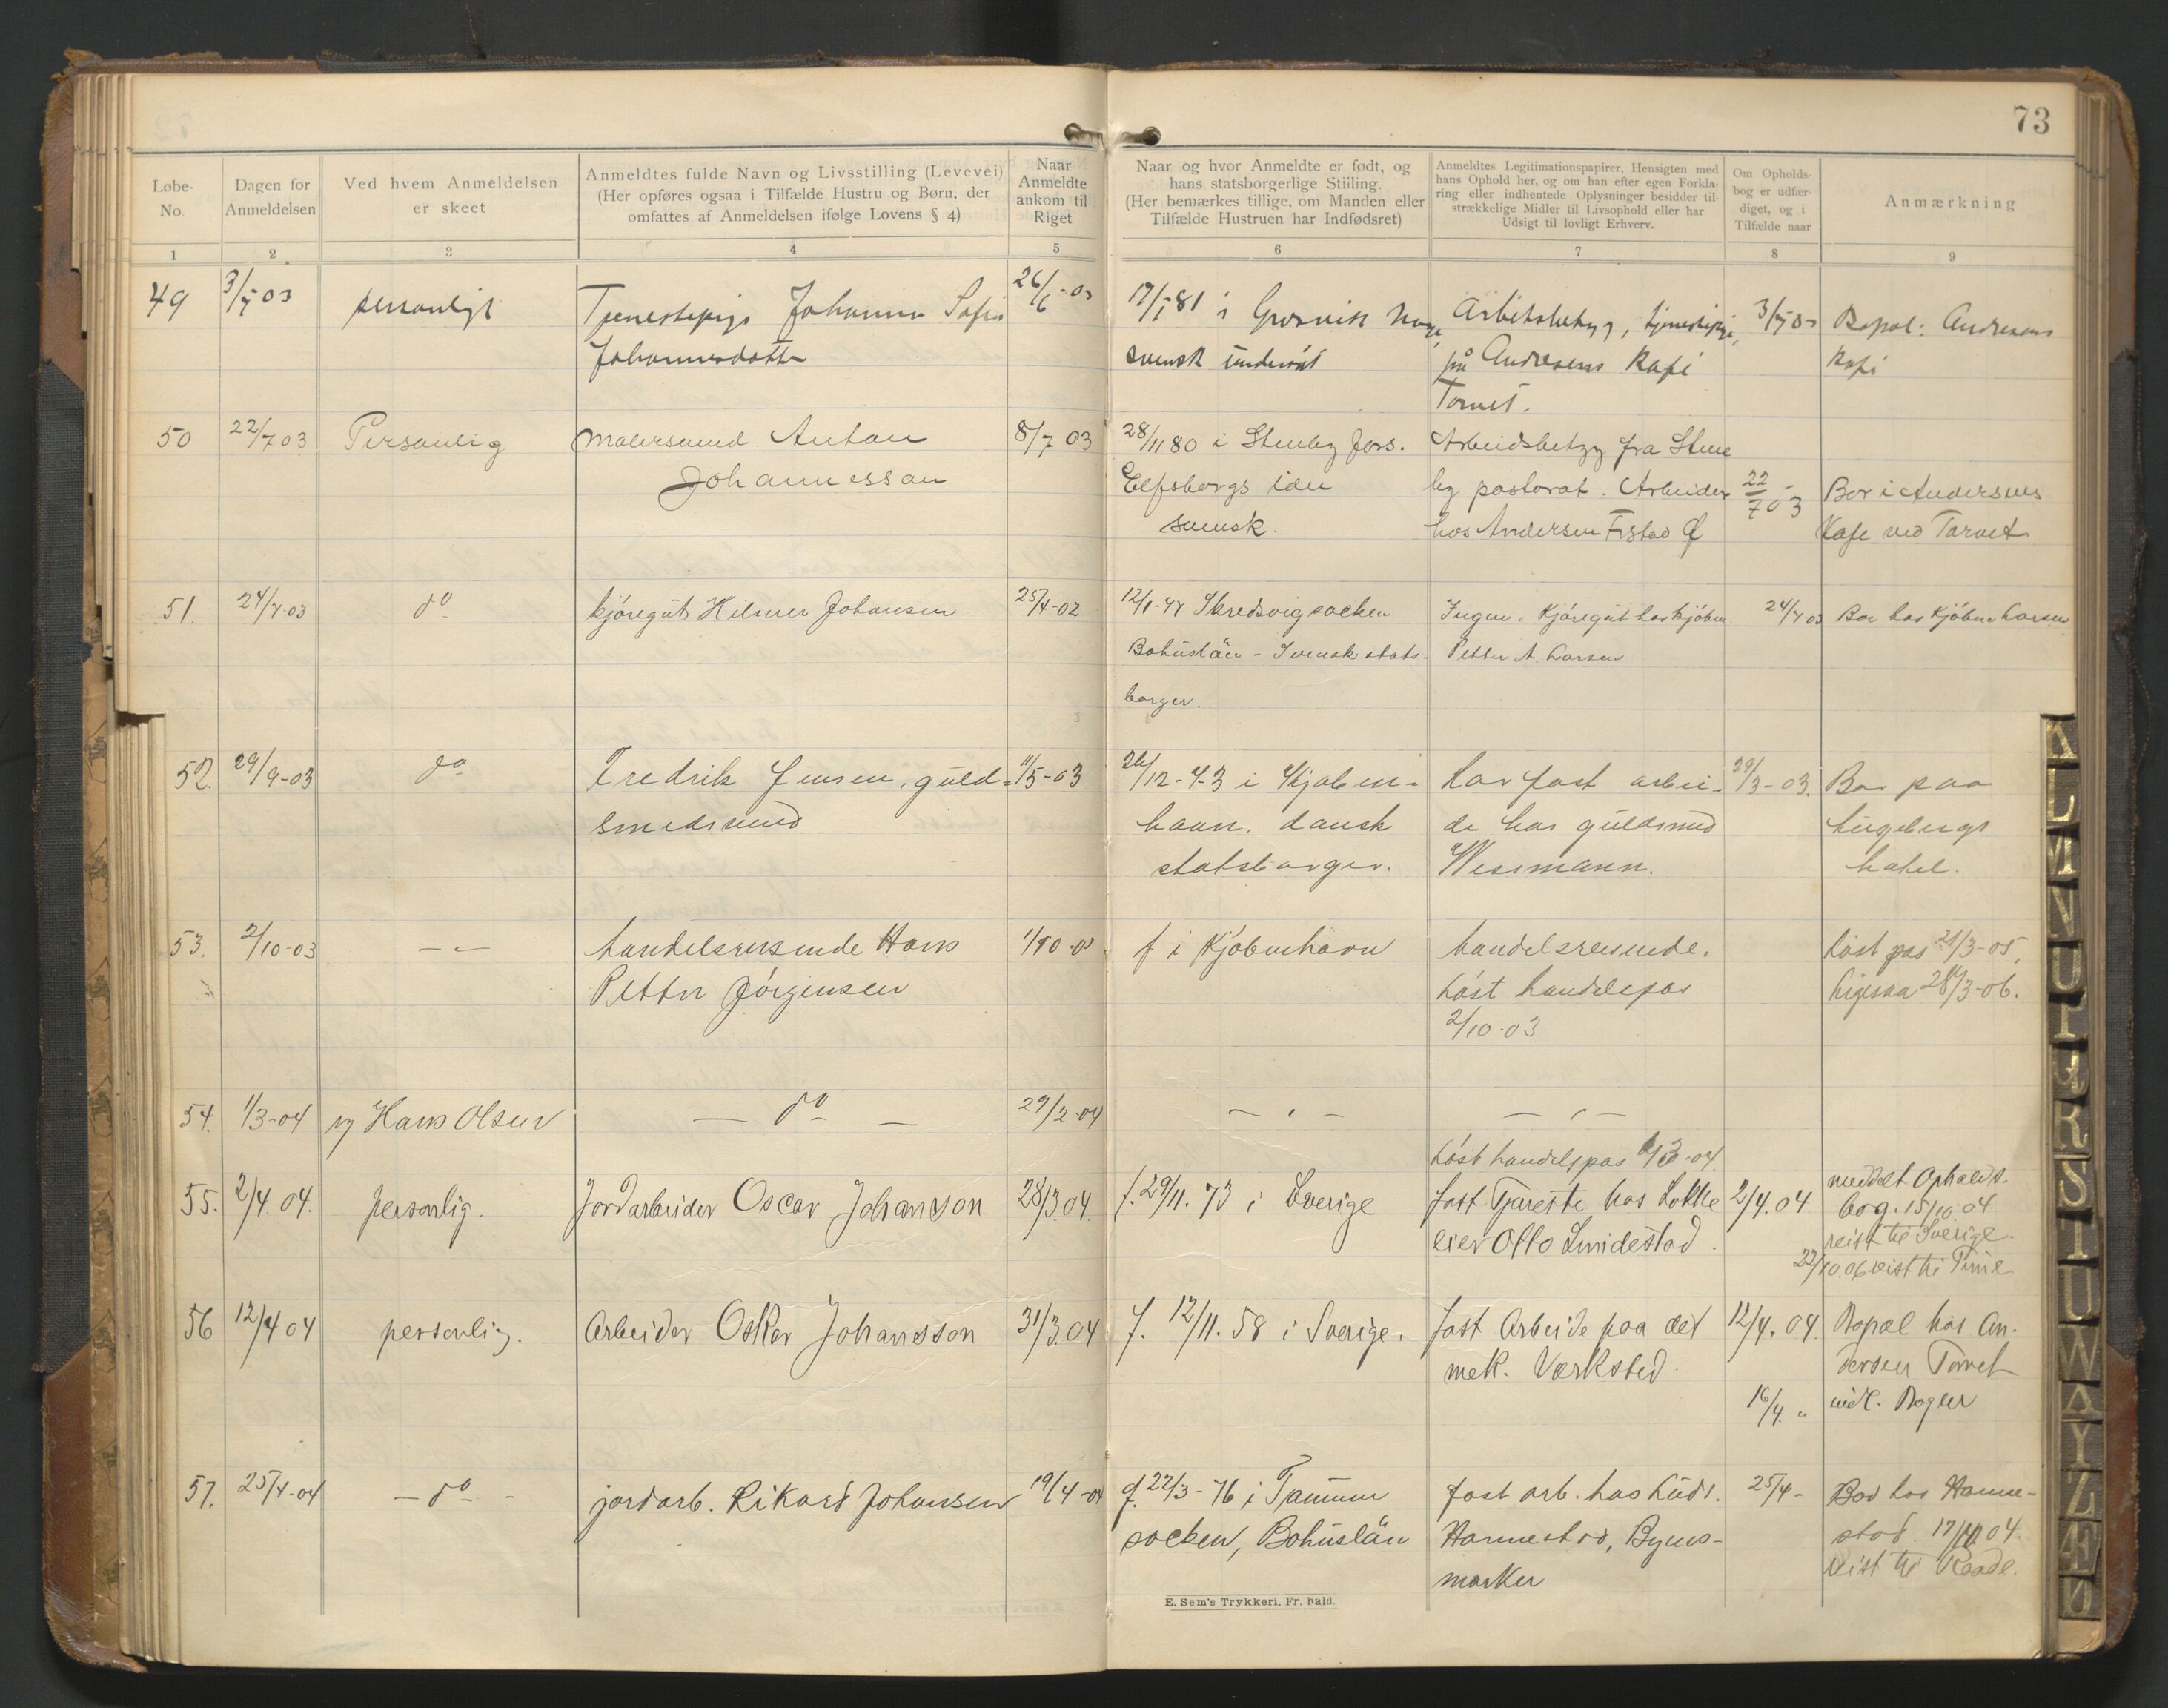 73
Løbe-No.
Dagen for Anmeldelsen
Ved hvem Anmeldelsen er skeet
Anmeldtes fulde Navn og Livsstilling (Levevei)
(Her opføres ogsaa i Tilfælde Hustru og Børn, der
omfattes af Anmeldelsen ifølge Lovens § 4)
Naar Anmeldte ankom til Riget
Naar og hvor Anmeldte er født, og
hans statsborgerlige Stilling.
(Her bemærkes tillige, om Manden eller
Tilfælde Hustruen har Indfødsret)
Anmeldtes Legitimationspapirer, Hensigten med
hans Ophold her, og om han efter egen Forkla-
ring eller indhentede Oplysninger besidder til-
strækkelige Midler til Livsophold eller har
Udsigt til lovligt Erhverv.
Om Opholds-
bog er udfær-
diget, og i
Tilfælde naar
Anmærkning
1 2 3 4 5 6 7 8 9
49 3/7 03 personligt Tjenestepige Johanna Sofia 26/6-03
Johannesdotter
svensk undersåt
på Andresens Kafe
Torvet.
3/7 03 Bopæl: Andresens
Kafe
50 22/7 03 Personlig Malersvend Anton 8/7 03 28/11 80 i Stenby fors.
Johannesson
Elfsborgs län
svensk.
Arbeidsbetyg fra Stene
by pastorat. Arbeider
hos Andersen
22/7 03
Bor i Andersens
Kafe ved Torvet
51. 24/7-03 do kjøregut Hilmer Johansen 25/4-02 Skredsvig socken
Bohuslän - Svensk stats-
borger.
Ingen. Kjøregut hos kjøbm.
Petter A. Larsen
24/7 03 Bor hos Kjøbm Larsen
52. 29/9-03 do Fredrik Jensen, guld- 11/5-03
smedsvend
i Kjøben-
havn. dansk
statsborger.
Har fast arbei-
de hos guldsmed
Wessmann.
Bor paa
hotel.
53. 2/10-03 — " — handelsreisende Hans
Petter Jörgensen
f i Kjøbenhavn
handelsreisende.
Løst handelspas
2/10-03
Løst pas 21/3-05,
ligesaa 28/3-06.
54. 1/3-04 Hans Olsen — do — 29/2-04 — " — — " —
Løst handelspas
55. 2/4. 04. personlig. Jordarbeider Oscar Johanson 28/3 04. f. 29/11. 73 i Sverige
fast Tjeneste hos Løkke
eier Otto
2/4. 04
meddelt Opholds-
bog. 15/10 04
reist til Sverige.
22/10.06 reist til
56 12/4 04 personlig. Arbeider Oskar Johansson 31/3.04 f. 12/11. 58 i Sverige.
fast Arbeide paa det
mek. Værksted
12/4. 04. Bopæl hos An-
dersen Torvet
16/4. "
57. 25/4-04 — do — jordarb. Rikard Johansen 19/4-04 f. 22/3-76 i Tanum
socken, Bohuslän
fast arb. hos
marker
25/4-
Bor hos Hanne-
stad. 04.
reist til Raade.
E. Sem's Trykkeri, Fr. hald.
K
L
M
N
O
P
R
S
T
U
W
A
Y
Z
Æ
Ø